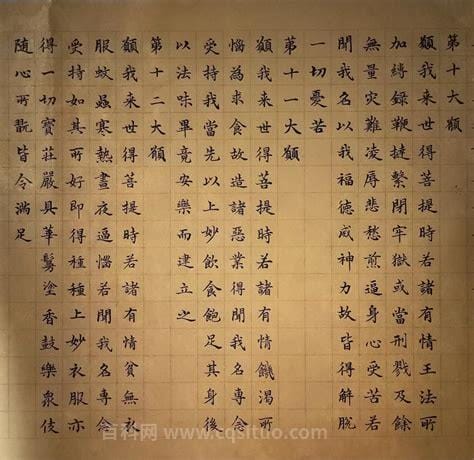 第十大願
願我来世得菩提時若諸有情王法所
加縛録鞭撻繫閉牢獄或當刑戮及餘
無量灾難凌辱悲愁煎逼身心受苦若
聞我名以我福德威神力故皆得解脫
一切憂苦
第十一大願
願我来世得菩提時若諸有情饑渴所
惱為求食故造諸惡業得聞我名專念
受持我當先以上妙飲食飽足其身後
以法味畢竟安樂而建立之
第十二大願
願我来世得菩提時若諸有情貧無衣
服蚊蟲寒熱晝夜逼惱若聞我名專念
受持如其所好即得種種上妙衣服亦
得一切寶莊嚴具華鬘塗香鼓樂衆伎
随心所翫皆令滿足
百科网 www.cqsituo.com